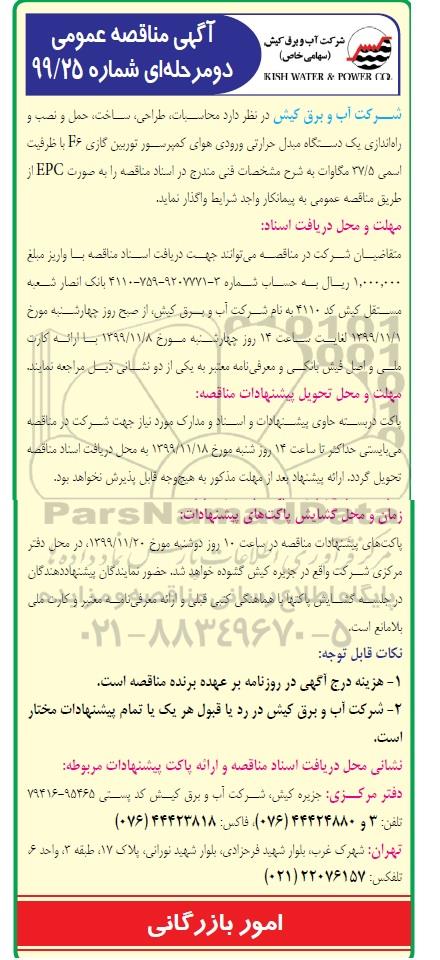 شرکت آب و برق کیش
(سهامی خاص)
KISH WATER & POWER CO.
آگهی مناقصه عمومی
دومرحله‌ای شماره ۹۹/۲۵
شرکت آب و برق کیش در نظر دارد محاسبات، طراحی، ساخت، حمل و نصب و
راه‌اندازی یک دستگاه مبدل حرارتی ورودی هوای کمپرسور توربین گازی F۶ با ظرفیت
اسمی ۳۷/۵ مگاوات به شرح مشخصات فنی مندرج در اسناد مناقصه را به صورت EPC از
طریق مناقصه عمومی به پیمانکار واجد شرایط واگذار نماید.
مهلت و محل دریافت اسناد:
متقاضیان شرکت در مناقصه می‌توانند جهت دریافت اسناد مناقصه با واریز مبلغ
۱,۰۰۰,۰۰۰ ریال به حساب شماره ۳-۹۲۰۷۷۷۱-۷۵۹-۴۱۱۰ بانک انصار شعبه
مستقل کیش کد ۴۱۱۰ به نام شرکت آب و برق کیش، از صبح روز چهارشنبه مورخ
۱۳۹۹/۱۱/۱ لغایت ساعت ۱۴ روز چهارشنبه مورخ ۱۳۹۹/۱۱/۸ با ارائه کارت
ملی و اصل فیش بانکی و معرفی‌نامه معتبر به یکی از دو نشانی ذیل مراجعه نمایند.
مهلت و محل تحویل پیشنهادات مناقصه:
پاکت دربسته حاوی پیشنهادات و اسناد و مدارک مورد نیاز جهت شرکت در مناقصه
می‌بایستی حداکثر تا ساعت ۱۴ روز شنبه مورخ ۱۳۹۹/۱۱/۱۸ به محل دریافت اسناد مناقصه
تحویل گردد. ارائه پیشنهاد بعد از مهلت مذکور به هیچ‌وجه قابل پذیرش نخواهد بود.
زمان و محل گشایش پاکت‌های پیشنهادات:
پاکت‌های پیشنهادات مناقصه در ساعت ۱۰ روز دوشنبه مورخ ۱۳۹۹/۱۱/۲۰، در محل دفتر
مرکزی شرکت واقع در جزیره کیش گشوده خواهد شد. حضور نمایندگان پیشنهاددهندگان
در جلسه گشایش پاکتها با هماهنگی کتبی قبلی و ارائه معرفی‌نامه معتبر و کارت ملی
بلامانع است.
۰۲۱-۸۸۳۴۹۶۷۰-۵
نکات قابل توجه:
۱- هزینه درج آگهی در روزنامه بر عهده برنده مناقصه است.
۲- شرکت آب و برق کیش در رد یا قبول هر یک یا تمام پیشنهادات مختار
است.
نشانی محل دریافت اسناد مناقصه و ارائه پاکت پیشنهادات مربوطه:
دفتر مرکزی: جزیره کیش، شرکت آب و برق کیش کد پستی ۹۵۴۶۵-۷۹۴۱۶
تلفن: ۳ و ۴۴۴۲۴۸۸۰ (۰۷۶)، فاکس: ۴۴۴۲۳۸۱۸ (۰۷۶)
تهران: شهرک غرب، بلوار شهید فرحزادی، بلوار شهید نورانی، پلاک ۱۷، طبقه ۳، واحد ۶،
تلفکس: ۲۲۰۷۶۱۵۷ (۰۲۱)
امور بازرگانی